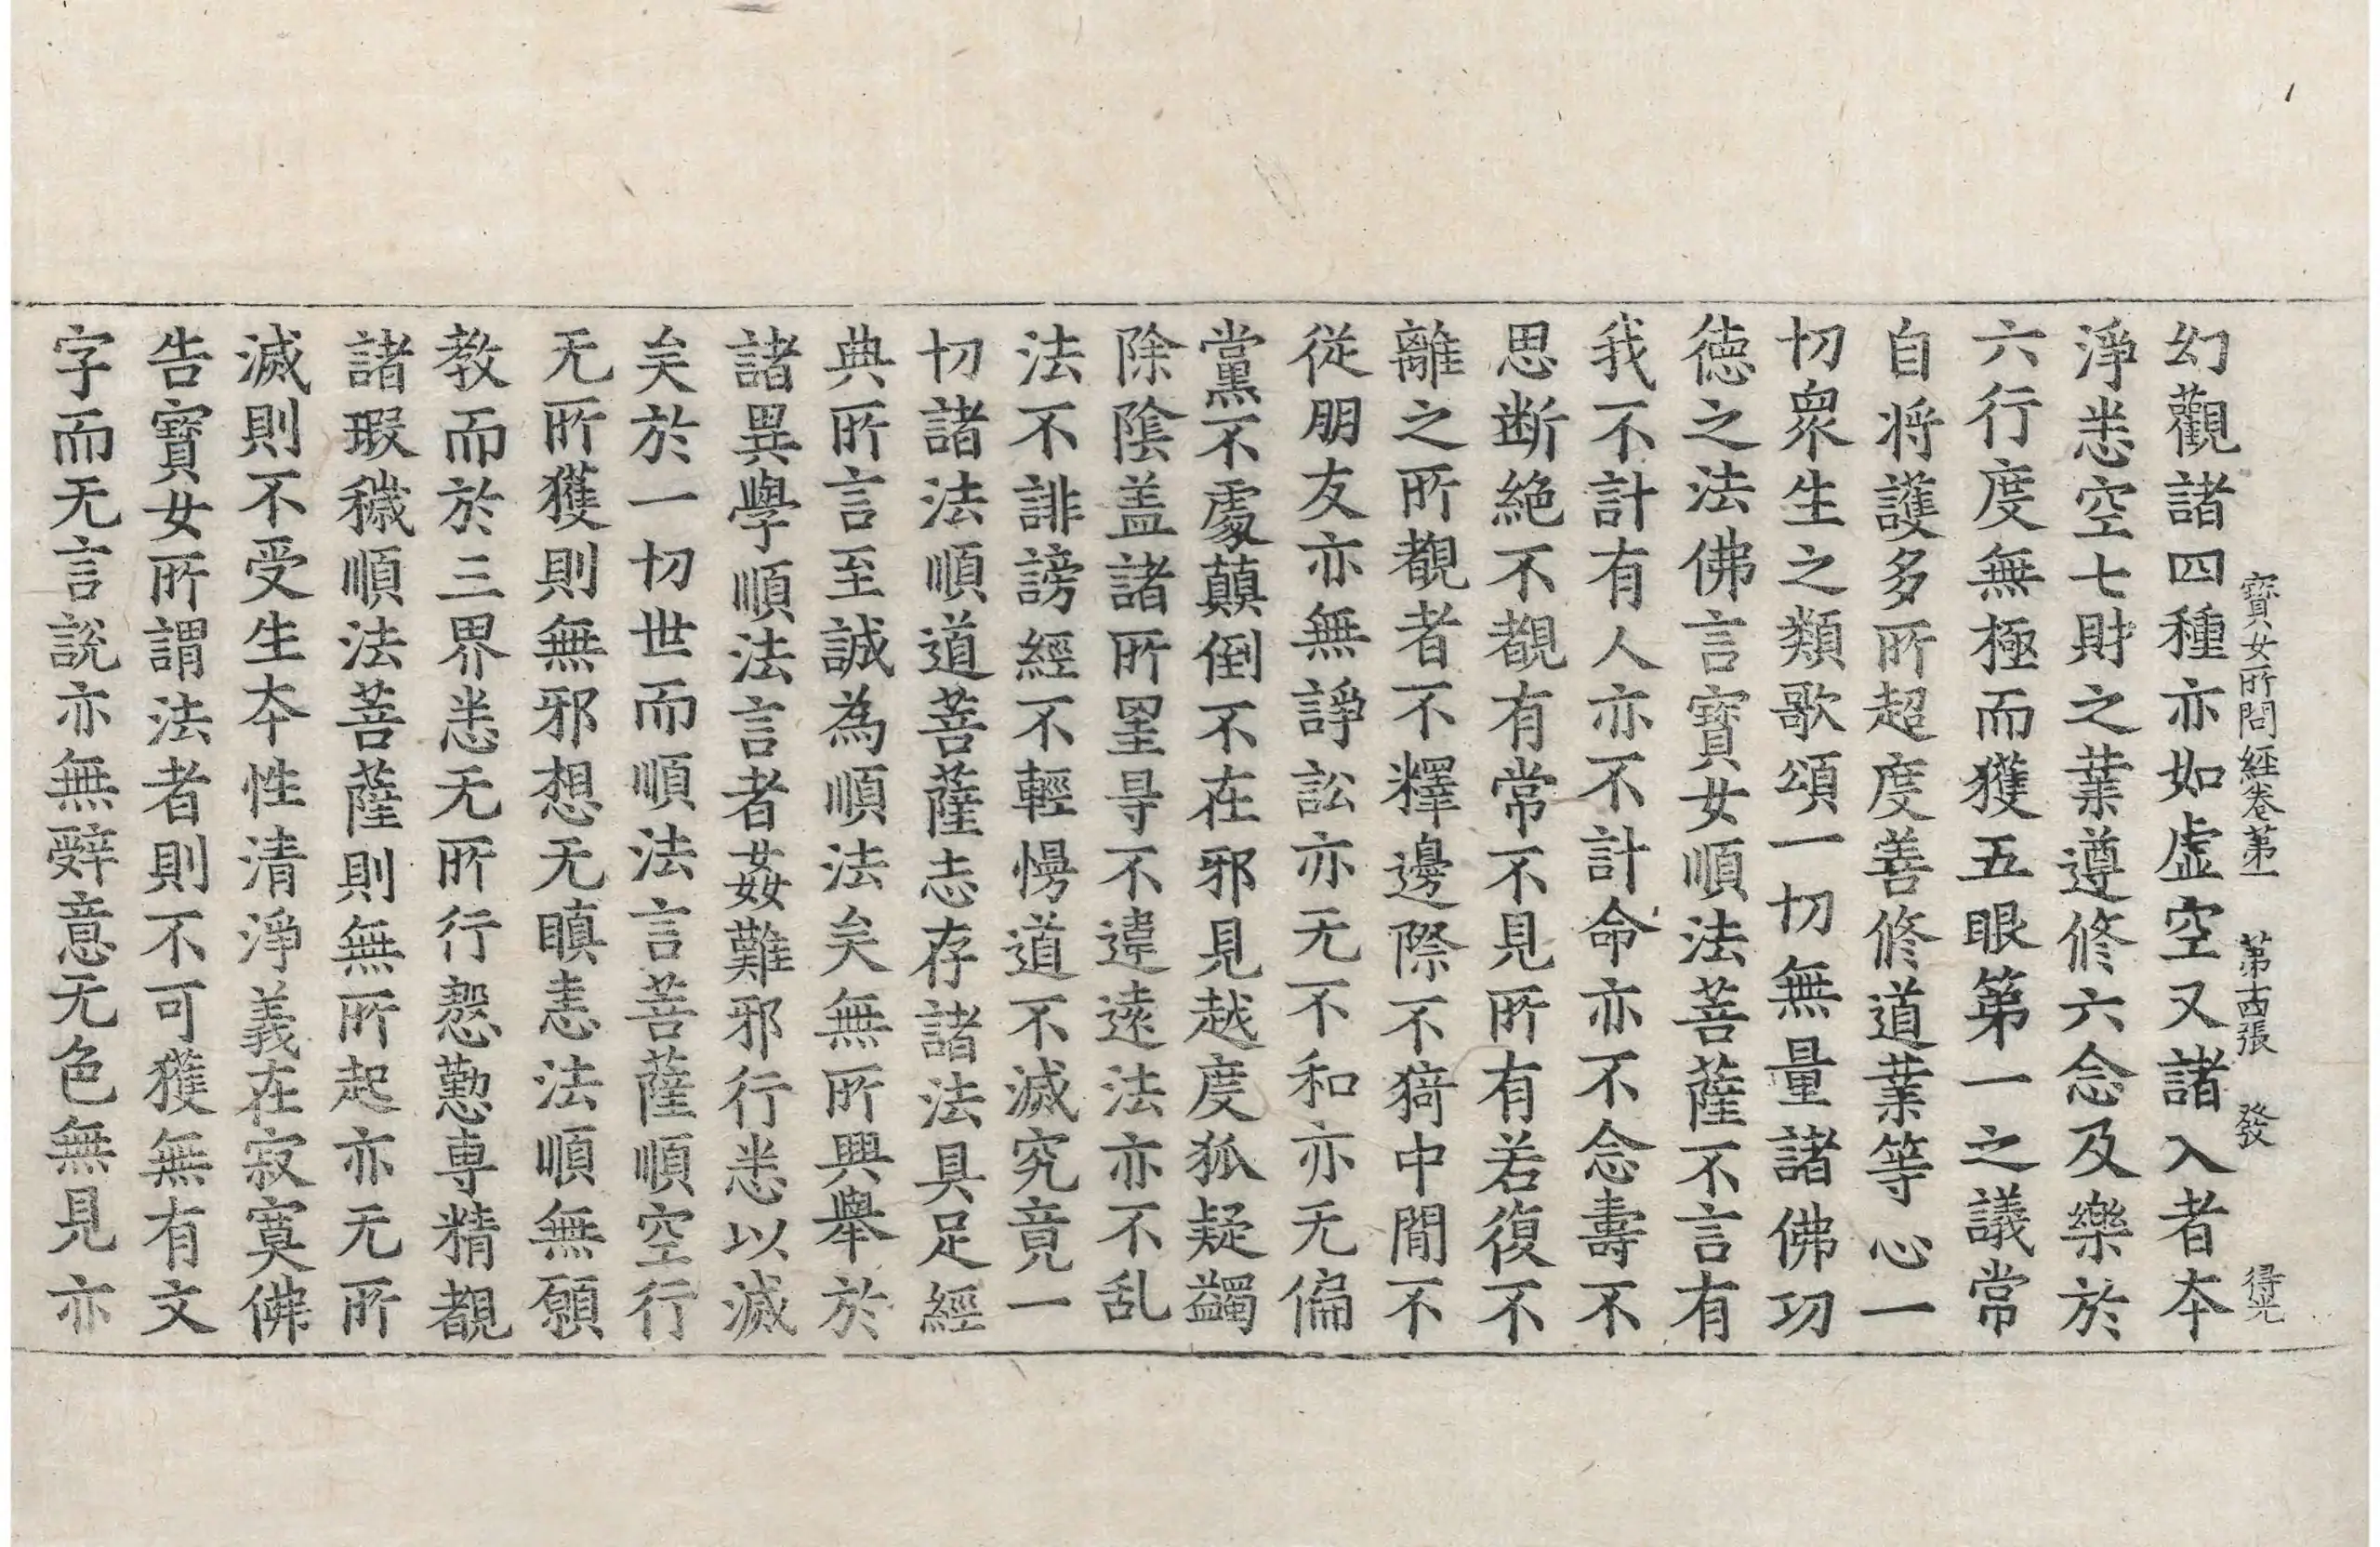 寶女所問經卷第一 第十四張 發 得光
幻觀諸四種亦如虛空又諸入者夲
淨悉空七財之業遵修六念及樂於
六行度無極而獲五眼第一之議常
自将護多所超度善修道業等心一
切衆生之類歌頌一切無量諸佛功
德之法佛言寶女順法菩薩不言有
我不計有人亦不計命亦不念壽不
思断絶不覩有常不見所有若復不
離之所覩者不釋邊際不猗中間不
從朋友亦無諍訟亦无不和亦无偏
黨不處顛倒不在邪見越度狐疑蠲
除陰盖諸所罣㝵不違遠法亦不乱
法不誹謗經不輕慢道不滅究竟一
切諸法順道菩薩志存諸法具足經
典所言至誠為順法矣無所興舉於
諸異學順法言者姦難邪行悉以滅
矣於一切世而順法言菩薩順空行
无所獲則無邪想无瞋恚法順無願
教而於三界悉无所行慇懃專精覩
諸瑕穢順法菩薩則無所起亦无所
滅則不受生夲性清淨義在寂寞佛
告寶女所謂法者則不可獲無有文
字而无言說亦無辭意无色無見亦